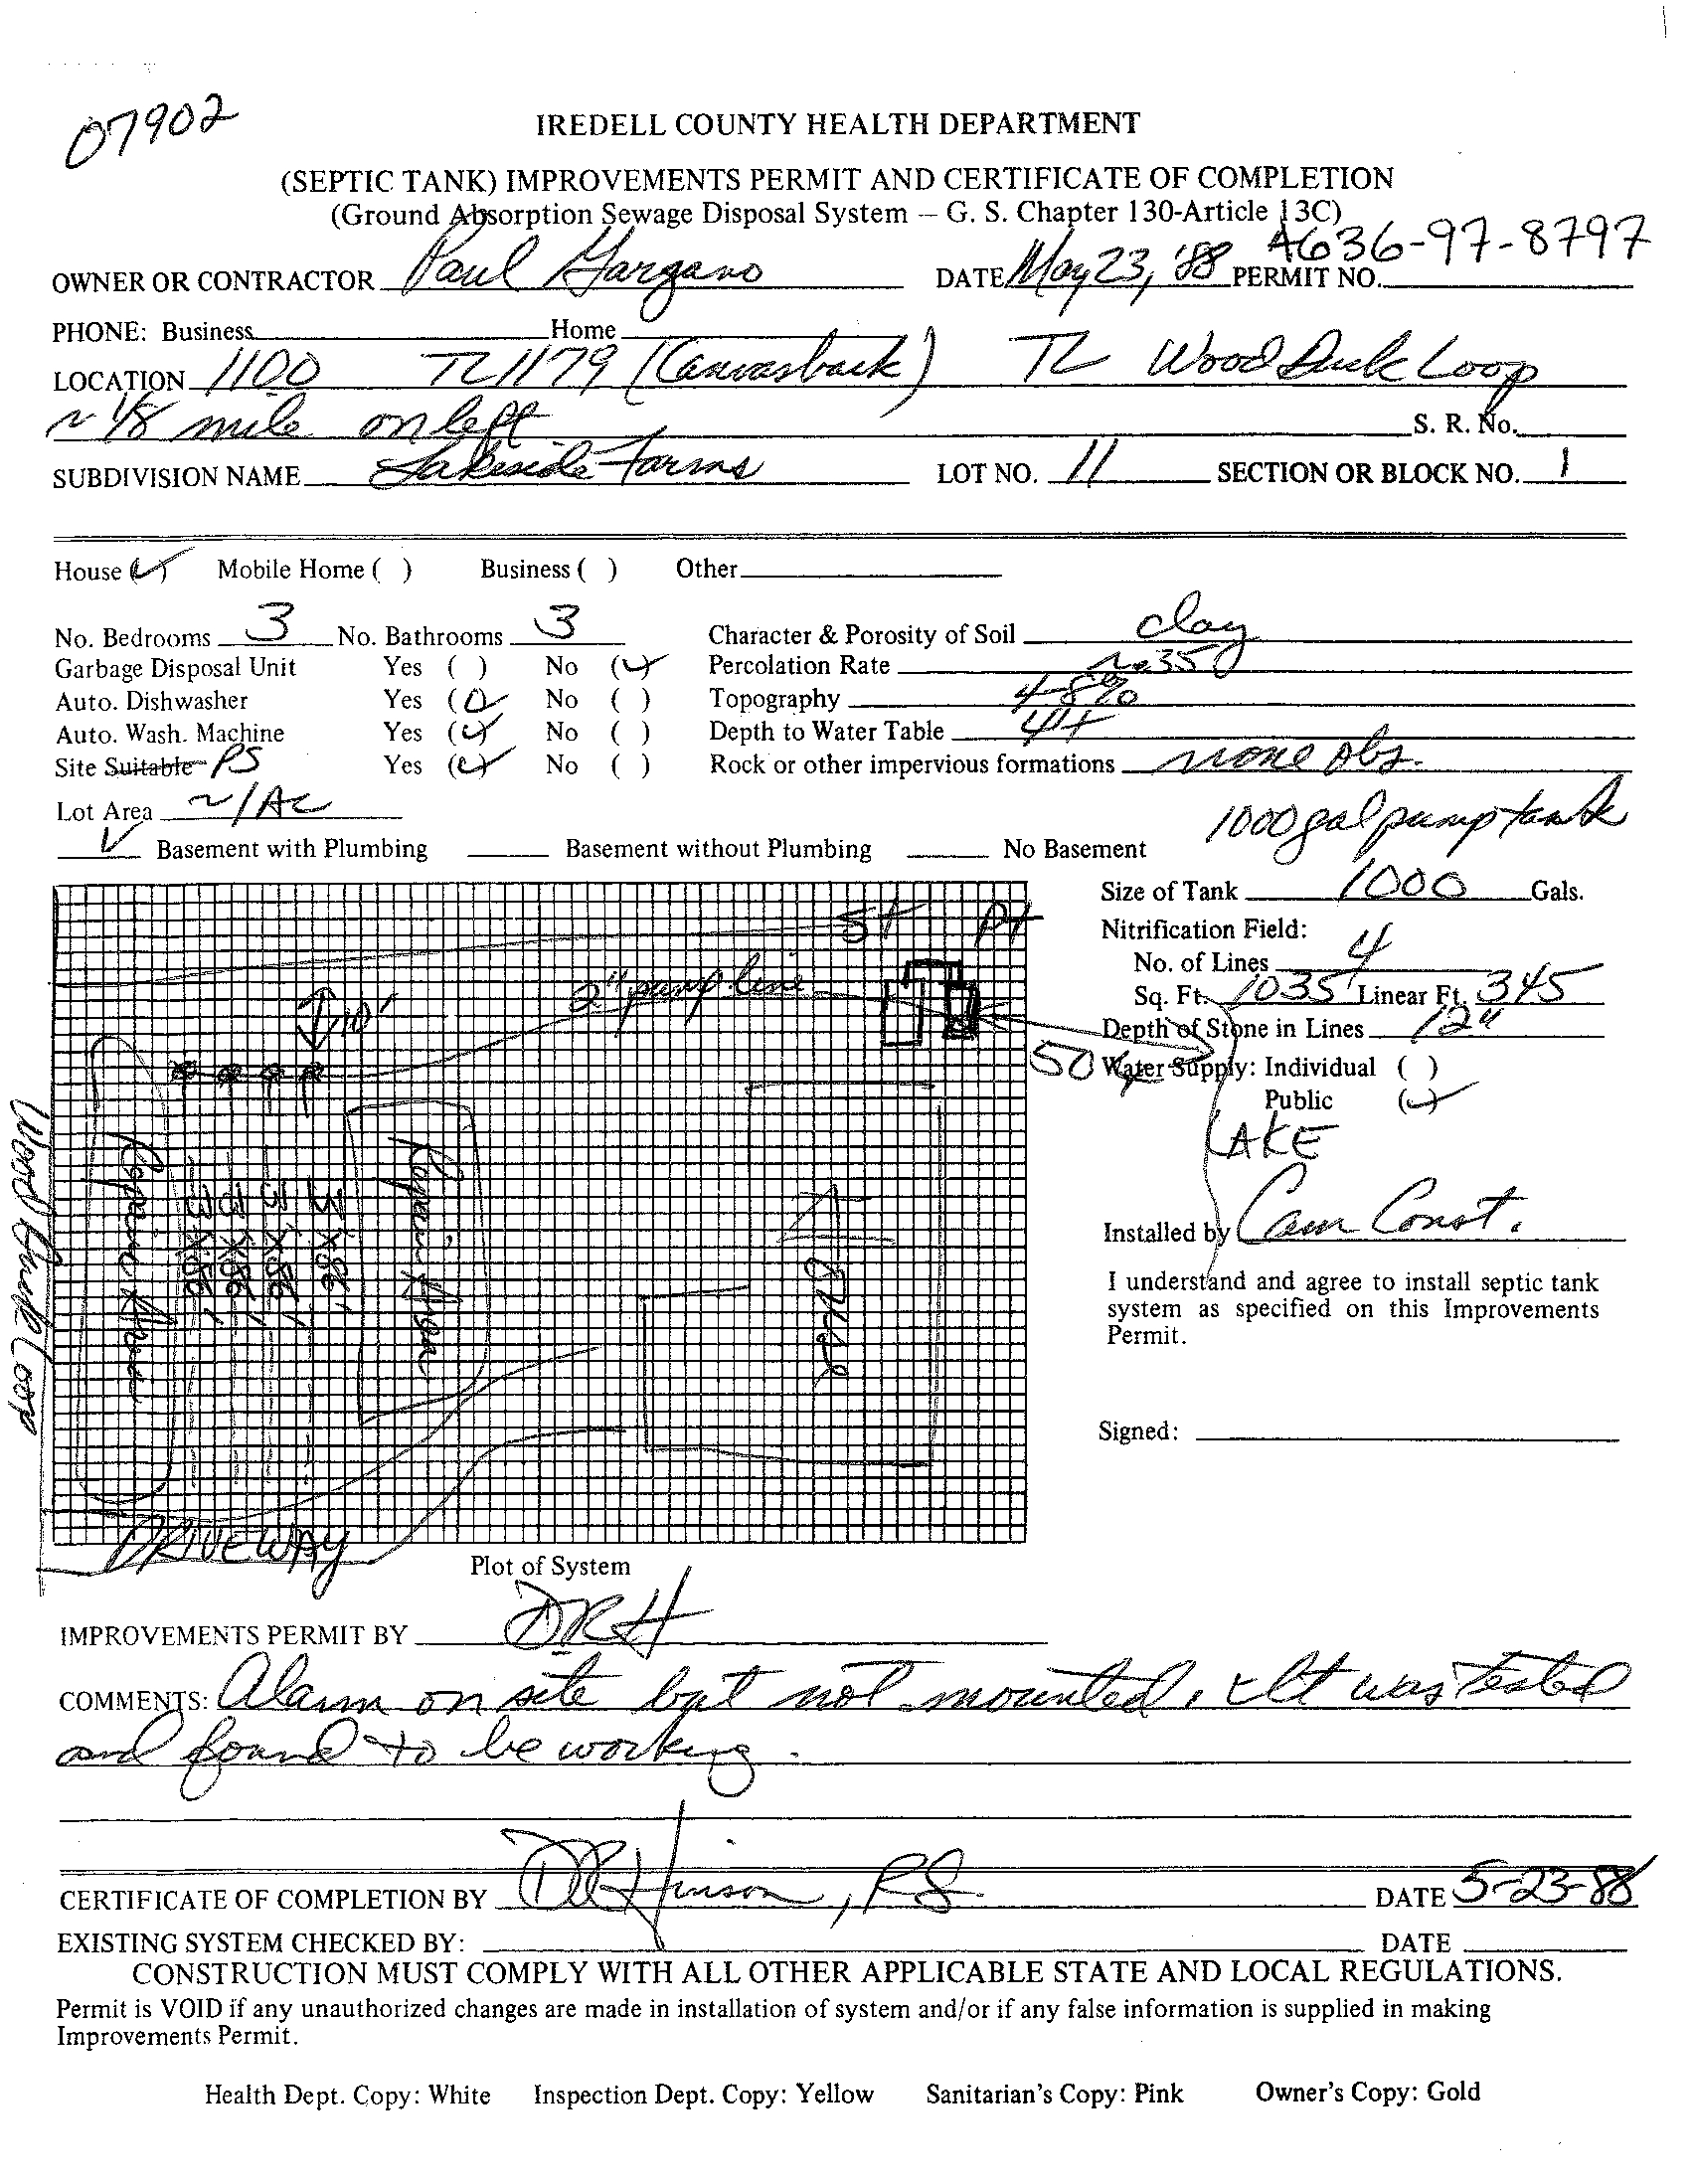 07902
IREDELL COUNTY HEALTH DEPARTMENT
(SEPTIC TANK) IMPROVEMENTS PERMIT AND CERTIFICATE OF COMPLETION
(Ground Absorption Sewage Disposal System – G. S. Chapter 130-Article 13C)
OWNER OR CONTRACTOR Paul Gargano DATE May 23, '88 PERMIT NO. 4636-97-8797
PHONE: Business Home
LOCATION 1100 TL 1179 (Canvasback) TL Wood Duck Loop
~ 1/8 mile on left S. R. No.
SUBDIVISION NAME Lakeside Farms LOT NO. 11 SECTION OR BLOCK NO. 1
House (✓) Mobile Home ( ) Business ( ) Other
No. Bedrooms 3 No. Bathrooms 3 Character & Porosity of Soil clay
Garbage Disposal Unit Yes ( ) No (✓) Percolation Rate ~.35
Auto. Dishwasher Yes (✓) No ( ) Topography 4-8%
Auto. Wash. Machine Yes (✓) No ( ) Depth to Water Table 4'+
Site Suitable PS Yes (✓) No ( ) Rock or other impervious formations none obs.
Lot Area ~1AC
1000 gal pump tank
✓ Basement with Plumbing Basement without Plumbing No Basement
Size of Tank 1000 Gals.
Nitrification Field:
No. of Lines 4
Sq. Ft. 1035 Linear Ft. 345
Depth of Stone in Lines 12"
Water Supply: Individual ( )
Public (✓)
50
LAKE
Installed by Cam Const.
I understand and agree to install septic tank
system as specified on this Improvements
Permit.
Signed:
St Pt
2" pump line
10'
Wood Duck Loop
Repair Area
3 X 86'
3 X 86'
3 X 86'
3 X 86'
Repair Area
House
DRIVEWAY
Plot of System
IMPROVEMENTS PERMIT BY DRH
COMMENTS: Alarm on site but not mounted. It was tested
and found to be working.
CERTIFICATE OF COMPLETION BY DR Hinson, RS DATE 5-23-88
EXISTING SYSTEM CHECKED BY: DATE
CONSTRUCTION MUST COMPLY WITH ALL OTHER APPLICABLE STATE AND LOCAL REGULATIONS.
Permit is VOID if any unauthorized changes are made in installation of system and/or if any false information is supplied in making
Improvements Permit.
Health Dept. Copy: White Inspection Dept. Copy: Yellow Sanitarian's Copy: Pink Owner's Copy: Gold